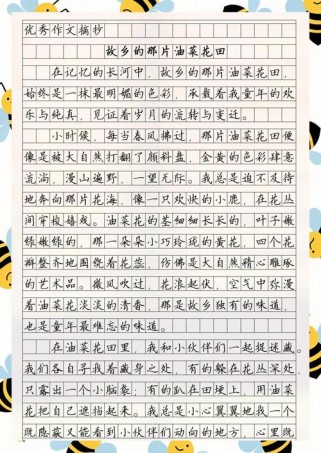 优秀作文摘抄
故乡的那片油菜花田
在记忆的长河中，故乡的那片油菜花田，
始终是一抹最明媚的色彩，承载着我童年的欢
乐与纯真，见证着岁月的流转与变迁。
小时候，每当春风拂过，那片油菜花田便
像是被大自然打翻了颜料盘，金黄的色彩肆意
流淌，漫山遍野，一望无际。我总是迫不及待
地奔向那片花海，像一只欢快的小鹿，在花丛
间穿梭嬉戏。油菜花的茎细细长长的，叶子嫩
绿嫩绿的，那一朵朵小巧玲珑的黄花，四个花
瓣整齐地围绕着花蕊，仿佛是大自然精心雕琢
的艺术品。微风吹过，花浪起伏，空气中弥漫
着油菜花淡淡的清香，那是故乡独有的味道，
也是童年最难忘的味道。
在油菜花田里，我和小伙伴们一起捉迷藏。
我们各自寻找着藏身之处，有的躲在花丛深处，
只露出一个小脑袋；有的趴在田埂上，用油菜
花把自己遮挡起来。我总是小心翼翼地找一个
既隐蔽又能看到小伙伴们动向的地方，心里既